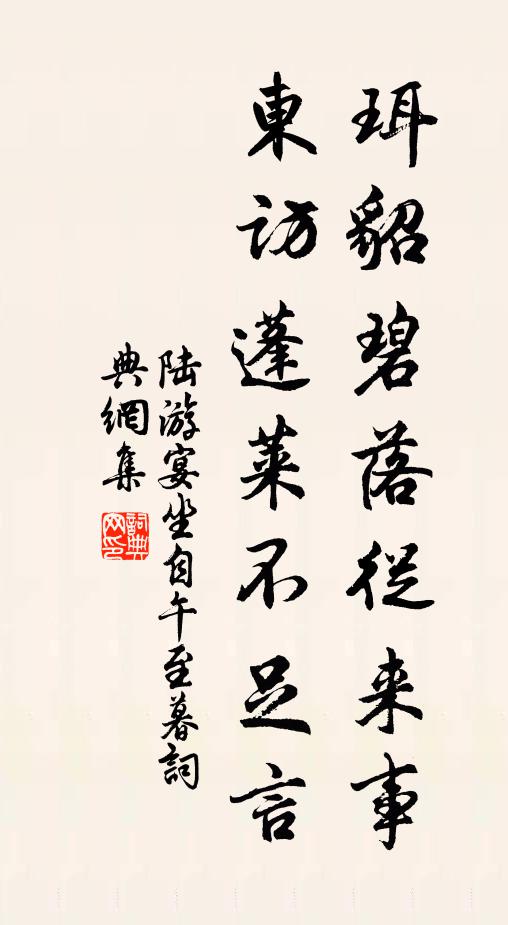 珥貂碧落從来事
東訪蓬萊不足言
陸游宴坐自午至暮詞
典網集
詞典
网印